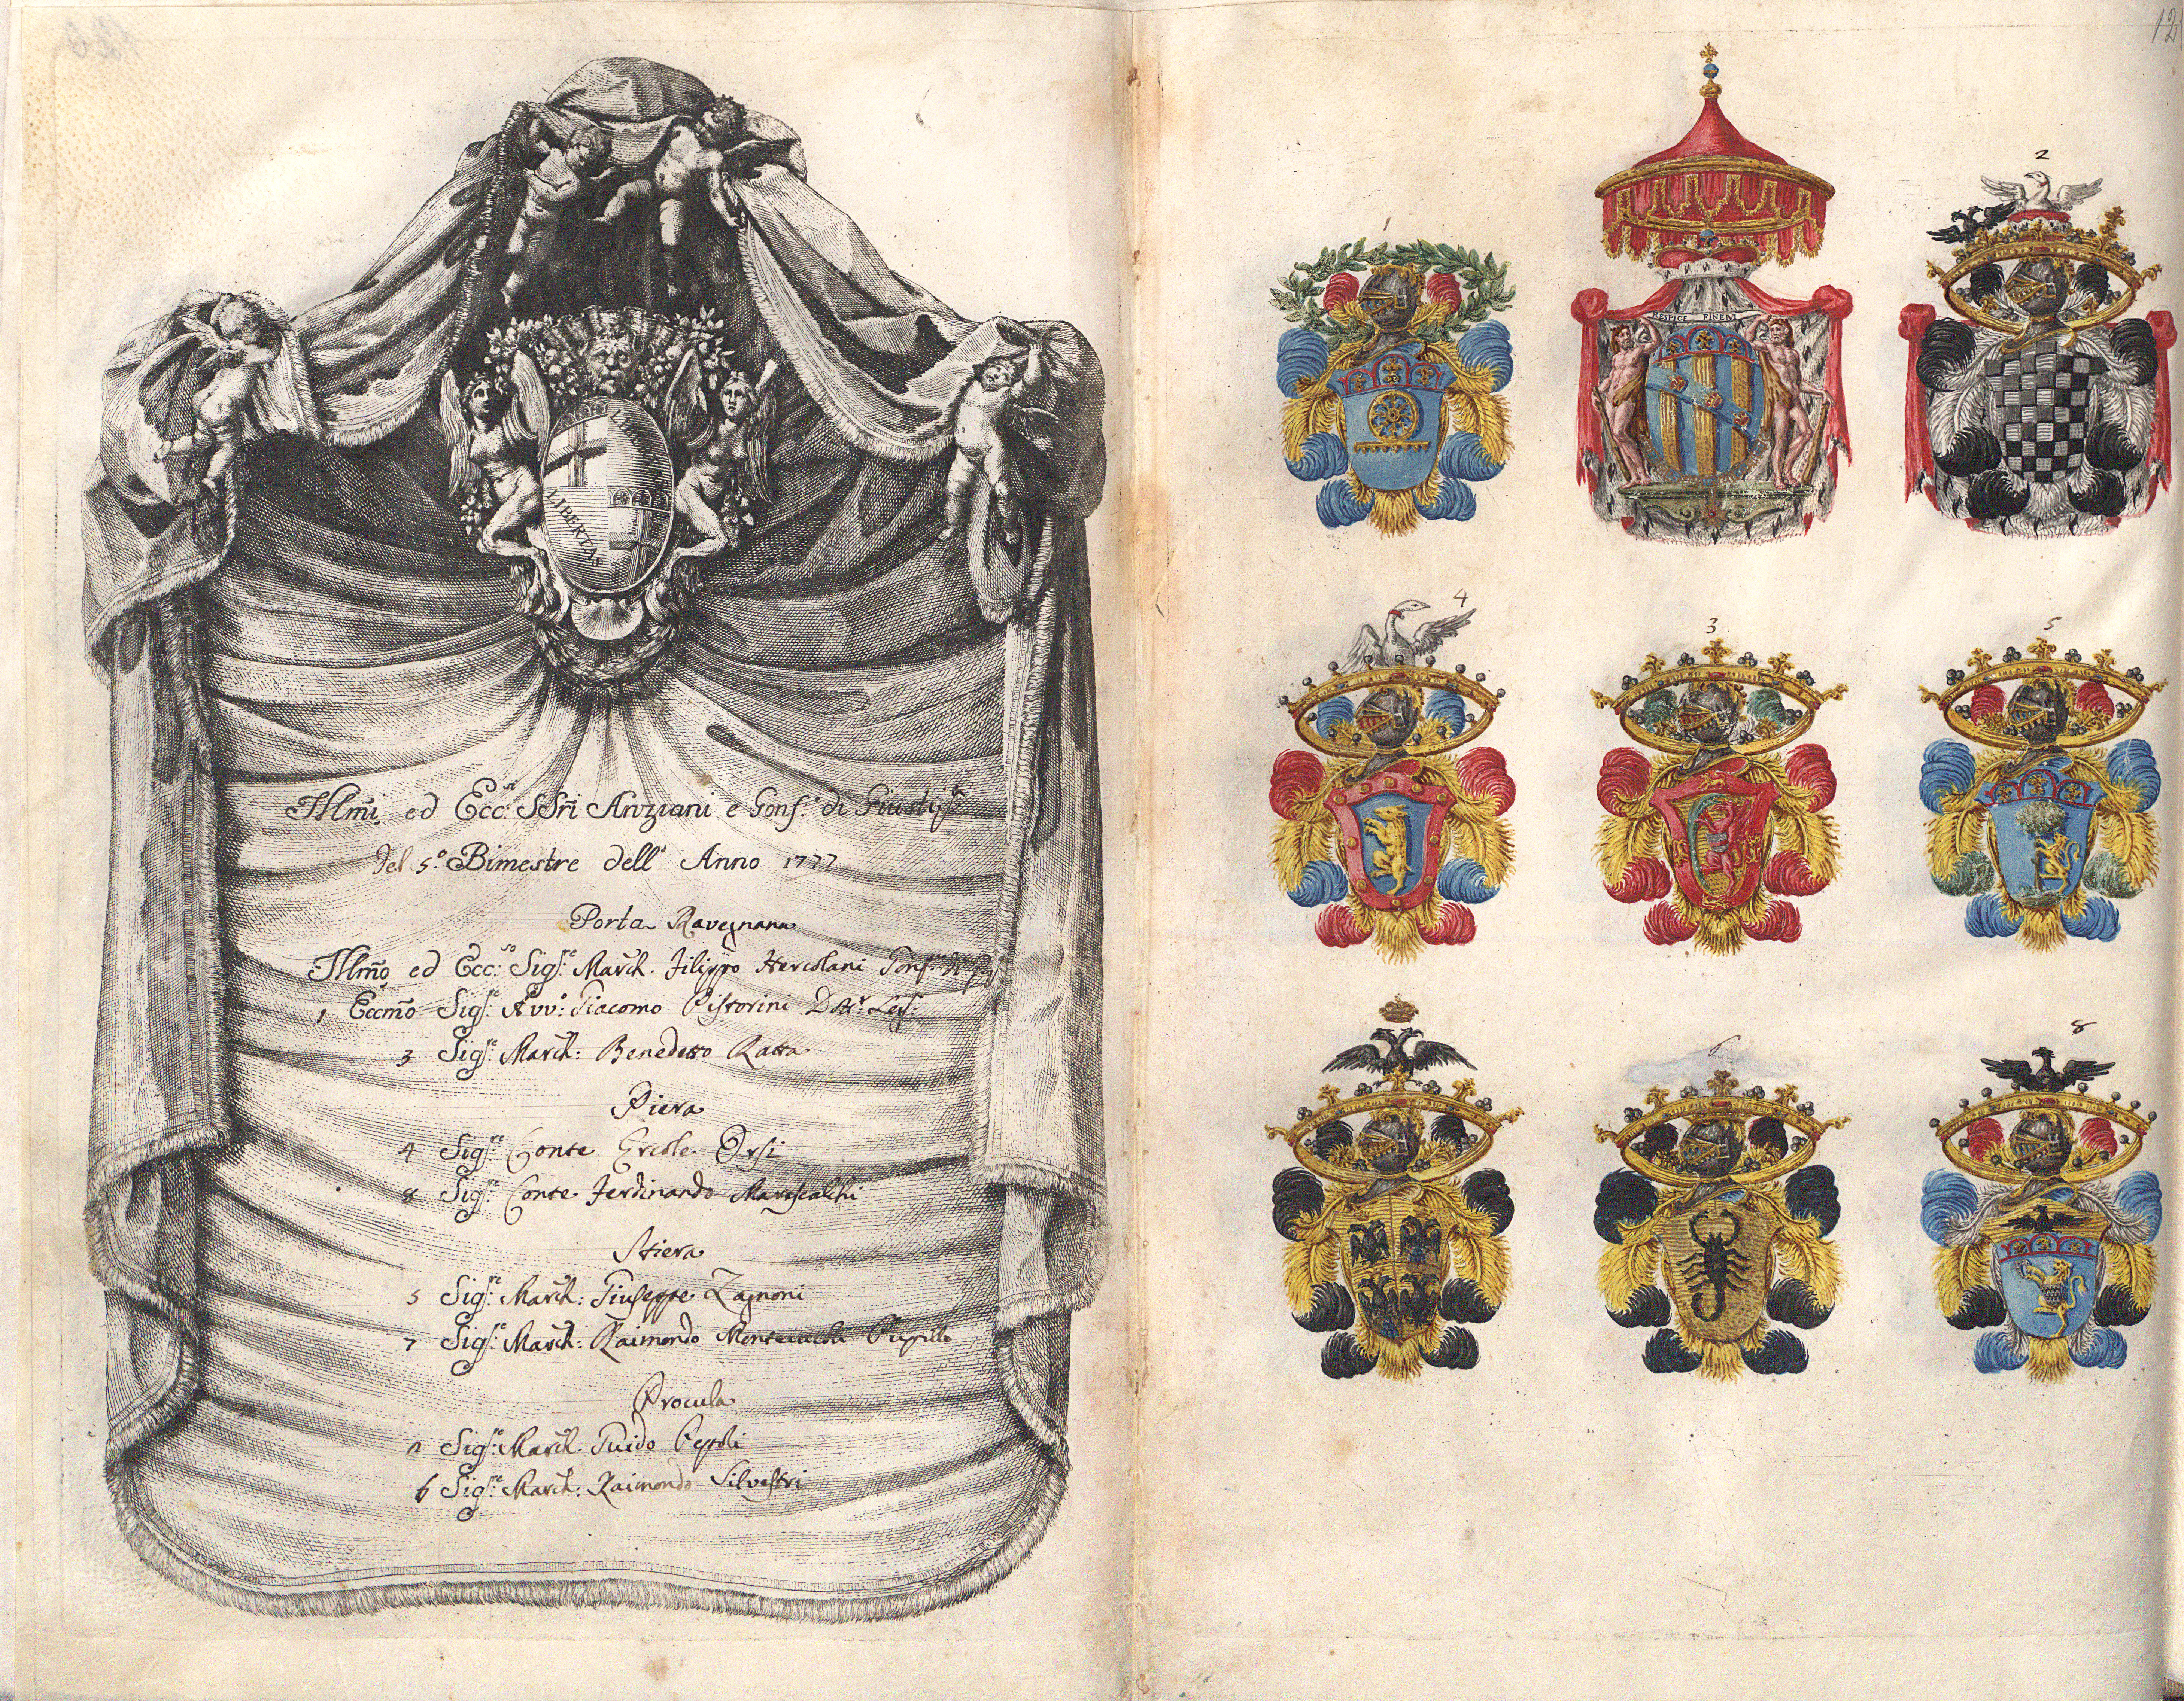 LIBERTAS
LIBERTAS
Illmi ed Ecc.si SSri Anziani e Gonf.e di Giustiz.a
del 5.o Bimestre dell' Anno 1777
Porta Ravegnana
Illmo ed Ecc.so Sig.re March. Filippo Hercolani Gonf.
1 Eccmo Sig.re Avv.o Giacomo Pistorini Dott.r Leg.
3 Sig.re March: Benedetto Ratta
Piera
4 Sig.re Conte Ercole Orsi
8 Sig.re Conte Ferdinando Marescalchi
Stiera
5 Sig.re March: Giuseppe Zagnoni
7 Sig.re March: Raimondo Montecuccoli
Procula
2 Sig.re March. Guido Pepoli
6 Sig.re March: Raimondo Silvestri
12
1
2
RESPICE FINEM
4
3
5
6
8